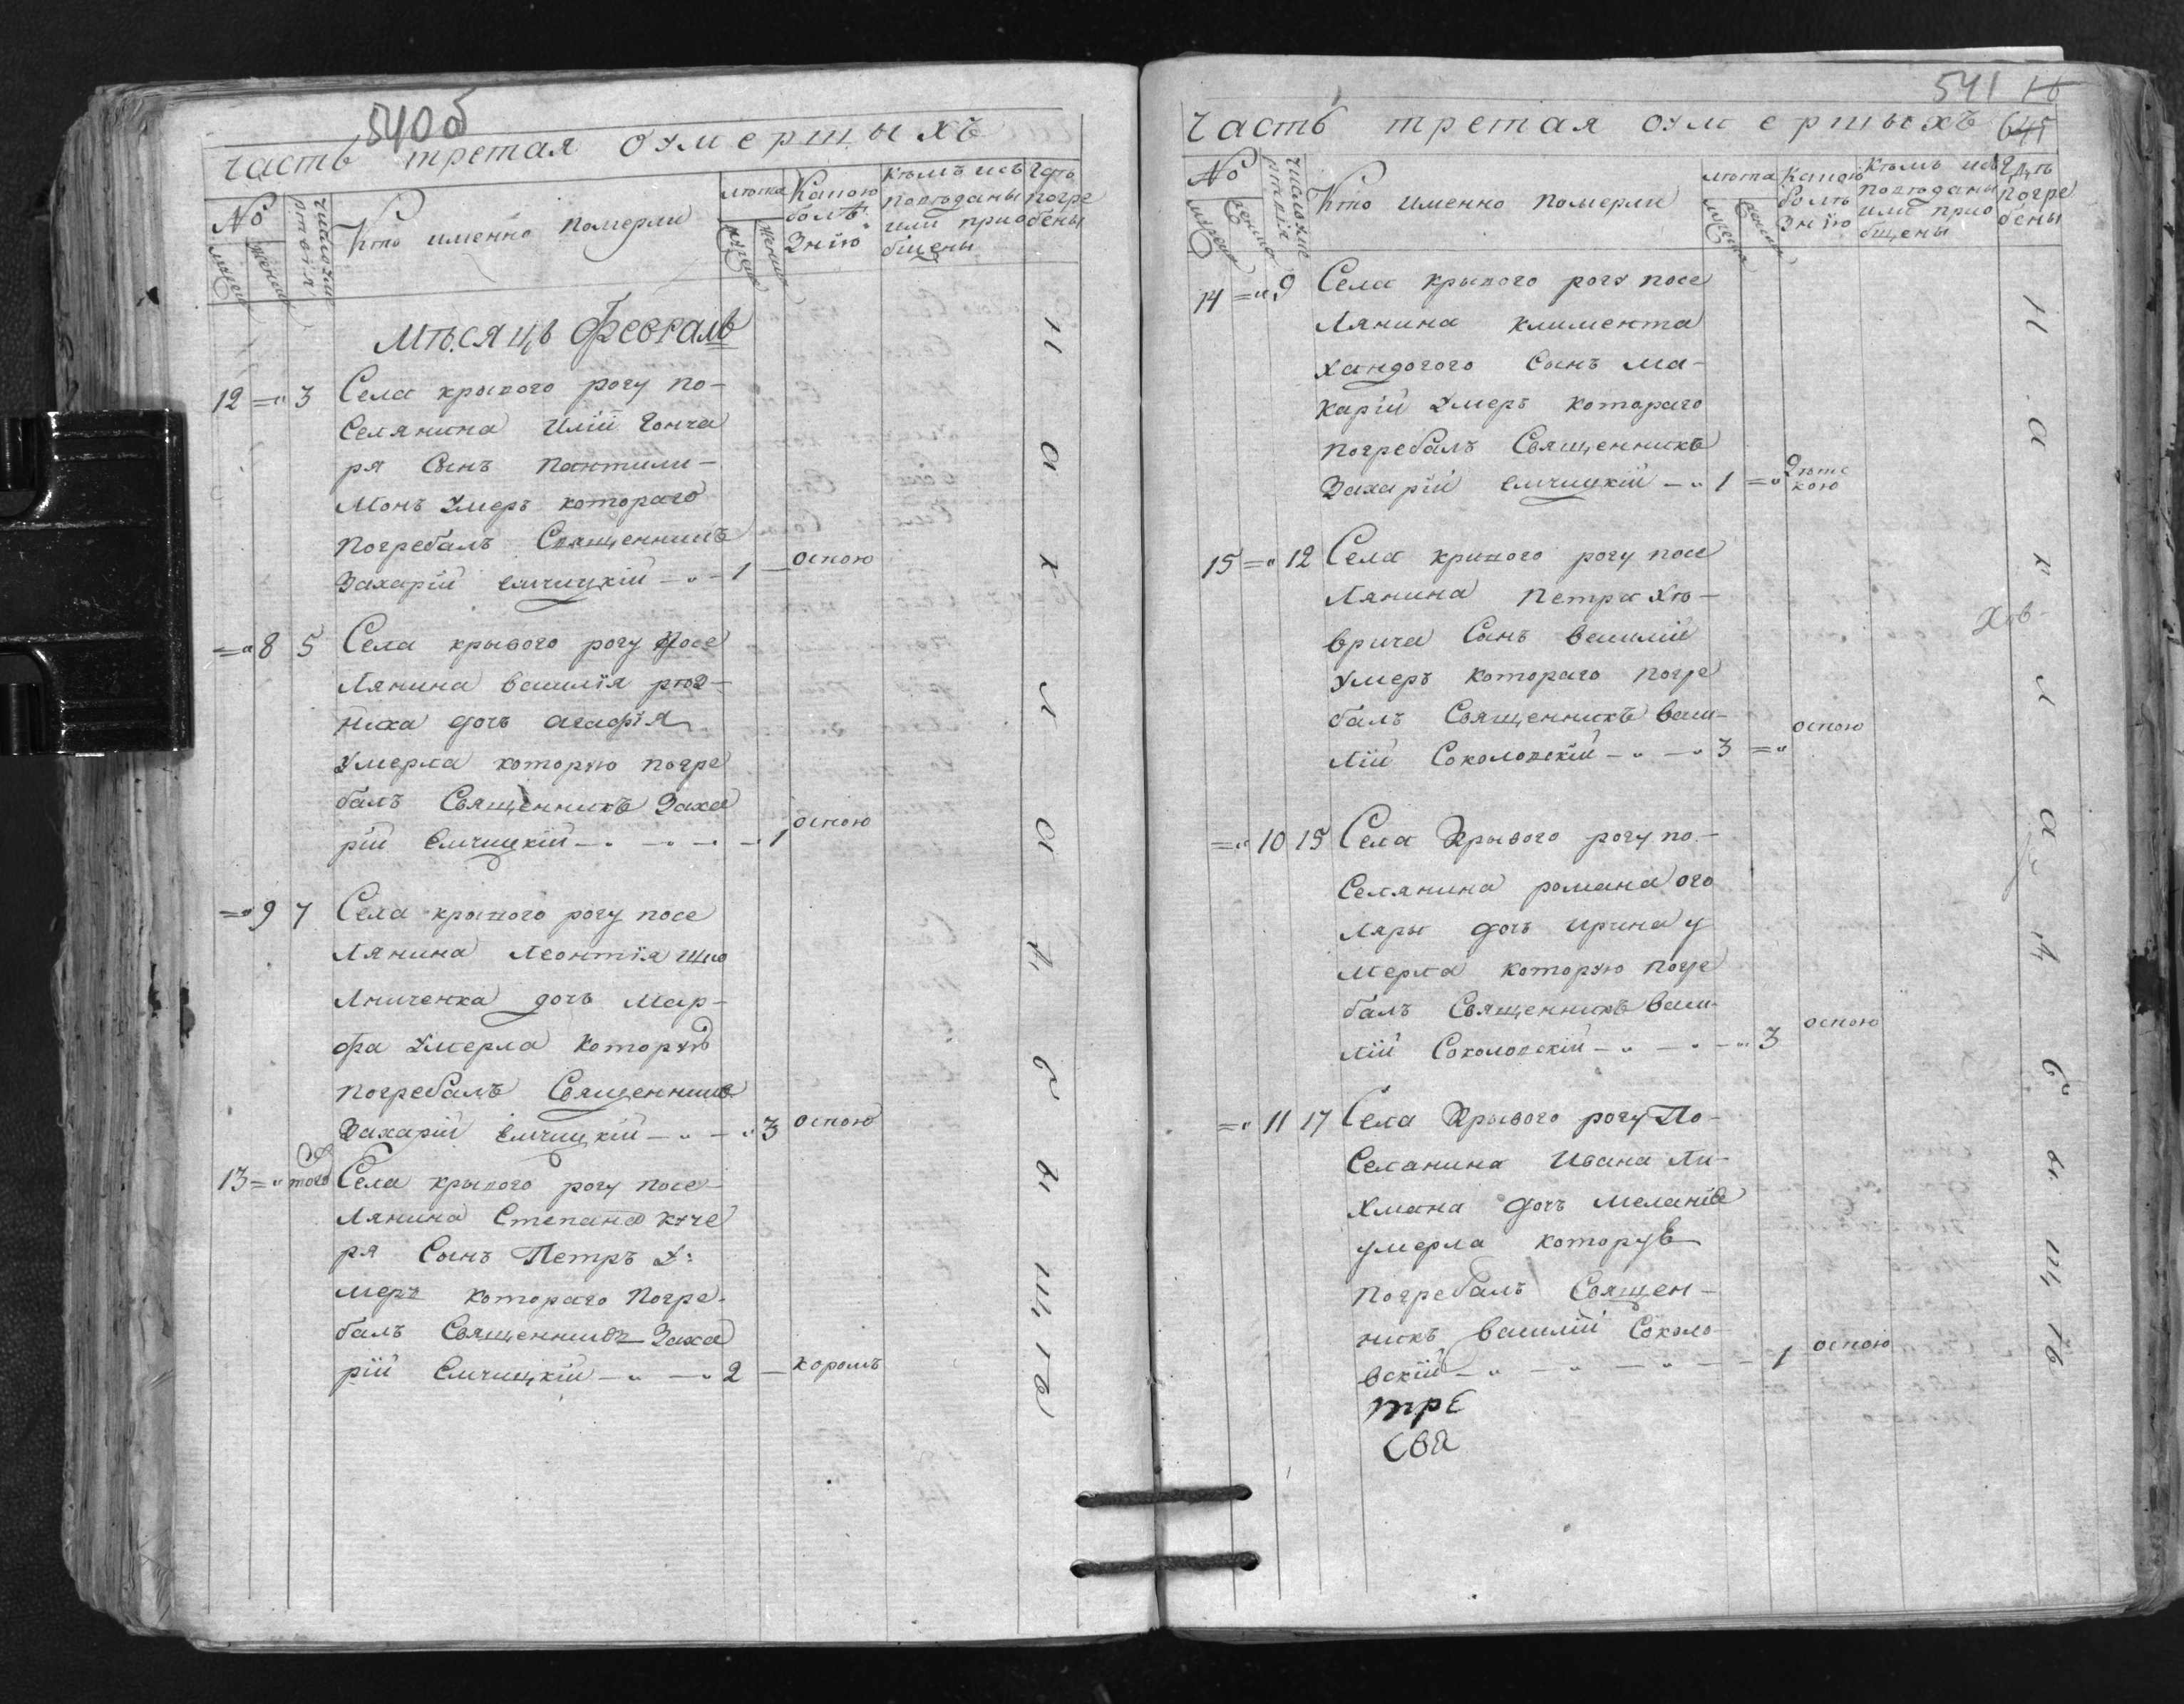 540об
часть третая оумершыхъ
№ мужеск женск
число смерти
Кто именно померли
лѣта мужеска женска
Какою болѣзнію
кѣмъ исповѣданы или приобщены
гдѣ погребены
Мѣсяцъ Февраль
12 =" 3 Села крывого рогу по-
Селянина Иліи Гонча
ря Сынъ Пантили-
Монъ Умеръ котораго
Погребалъ Священникъ
Захарій Елчицкій — " — 1 — оспою
=" 8 5 Села крывого рогу посе
Лянина василія
дочь агафія
Умерла которую погре
балъ Священникъ Заха
рій Елчицкій — " — " — " 1 оспою
=" 9 7 Села крывого рогу посе
Лянина Леонтія Шио
Лниченка дочь Мар-
фа Умерла Которую
Погребалъ Священникъ
Захарій Елчицкій — " — " 3 оспою
13 =" того Села крывого рогу посе-
Лянина Степана куче
ря Сынъ Петръ У:
меръ котораго Погре-
балъ Священникъ Заха
рій Елчицкій — " — " 2 — коромъ
на кладбыщѣ
541
645
часть третая оумершыхъ
№ мужеск женско
Кто именно померли
лѣта
Какою болѣзнію
Кѣмъ исповѣданы или приобщены
Гдѣ погребены
14 =" 9 Села крывого рогу посе
Лянина климента
хандогого Сынъ ма-
карій Умеръ котораго
погребалъ Священникъ
Захарій Елчицкій — " 1 =" дѣтс
кою
15 =" 12 Села кривого рогу посе
Лянина Петра Хв-
врича Сынъ василій
Умеръ котораго погре
балъ Священникъ васи-
лій Соколовскій — " — " 3 =" оспою
Хов-
=" 10 15 Села Крывого рогу по-
Селянина романа ого
ляры дочь ирина у
мерла которую погре
балъ Священникъ васи-
лій Соколовскій — " — " — " 3 оспою
=" 11 17 Села Крывого рогу По-
Селанина Ивана Ли-
хмана дочь мелания
умерла которую
погребалъ Священ-
никъ василій Соколо
вскій — " — " — " — 1 оспою
трЕ
Сва
на кладбыщѣ